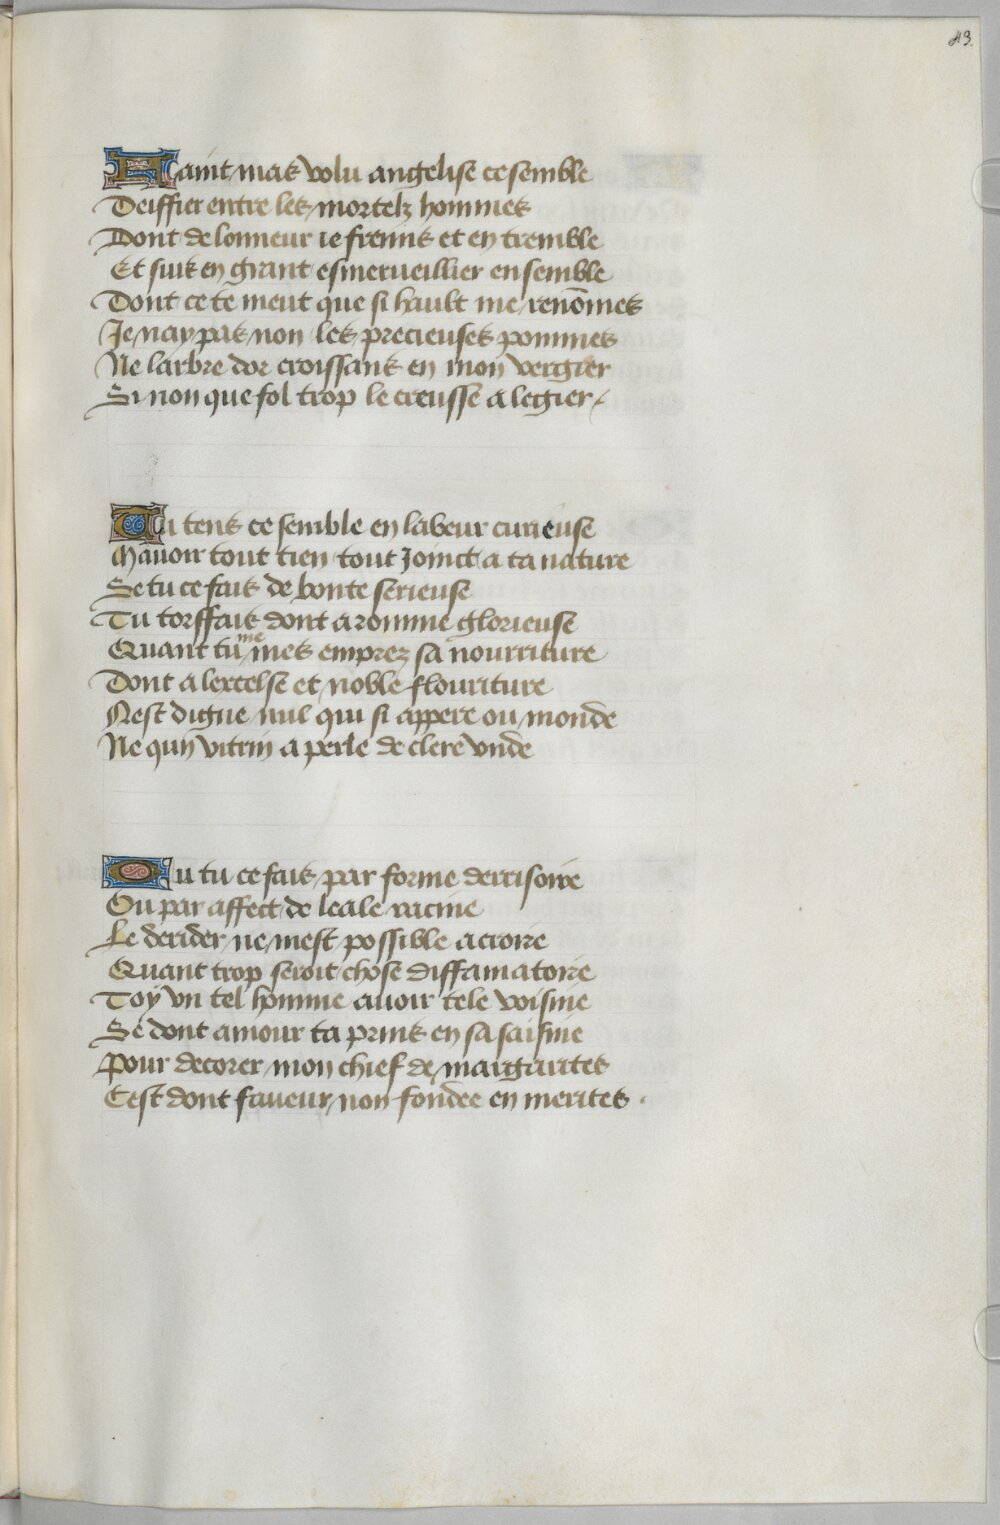 43.
Haint mas volu angelise ce semble
Deiffier entre les mortelz hommes
Dont de lonneur ie fremis et en tremble
Et suis en grant esmerueillier ensemble
Dont ce te meut que si hault me renōmes
Je nay pas non les precieuses pommes
Ne larbre dor croissans en mon vergier
Si non que fol trop le creusse a legier
Tu tens ce semble en labeur curieuse
Mauoir tout tien tout joinct a ta nature
Se tu ce fais de bonte serieuse
Tu torffais dont a romme glorieuse
Quant tu me mes emprez sa nourriture
Dont a lexcelse et noble flouriture
Nest digne nul qui si appere ou monde
Ne qun vitrin a perle de clere vnde
Ou tu ce fais par forme derrisoire
Ou par affect de leale racine
Le derider ne mest possible a croire
Quant trop seroit chose diffamatoire
Toy vn tel homme auoir tele voisine
Se dont amour ta prins en sa saisine
Pour decorer mon chief de margarites
Cest dont faueur non fondee en merites .